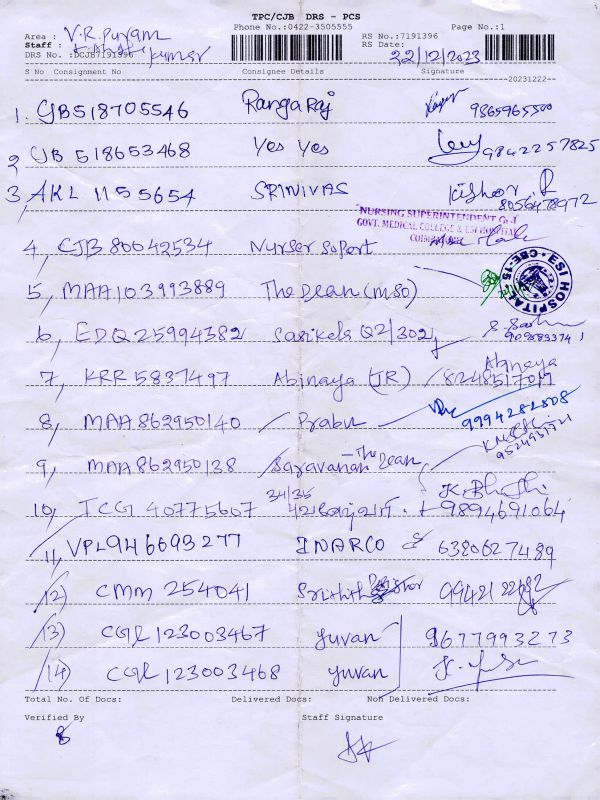 TPC/CJB DRS - PCS
Phone No.:0422-3505555
Page No.:1
Area : V.R.Puram
RS No.:7191396
Staff : Kumar
RS Date: 22/12/2023
DRS No. :DCJB7191396
S No Consignment No Consignee Details Signature
20231222
1. CJB518705546 Rangaraj 9865965500
2, CJB 518653468 Yes Yes 9842257825
3, AKL 1155654 SRINIVAS Kishor.R 8056478972
NURSING SUPERINTENDENT Gr-I
GOVT. MEDICAL COLLEGE & ESI HOSPITAL
COIMBATORE
4, CJB 80042534 Nurser Supert
ESI HOSPITAL CBE-15
5, MAA103993889 The Dean (MSO)
6, EDQ 25994382 Sasikela Q2/302
7, KRR 5837497 Abinaya (JR) Abinaya 8248517017
8, MAA 862950140 Prabu 9994282808
9, MAA 862950138 Saravanan The Dean
10, TCG 40775607 34/35 K. Bhathi 9894691064
11, VPL946693277 INARCO 6380627489
12) CMM 254041
13) CGL 123003467 Yuvan 9677993273
14) CGL 123003468 Yuvan
Total No. Of Docs: Delivered Docs: Non Delivered Docs:
Verified By Staff Signature